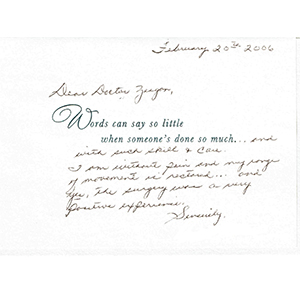 February 20th, 2006
Dear Doctor
Words can say so little
when someone's done so much... and
with such skill & care.
I am without pain and my range
of movement is restored... and
yes, the surgery was a very
positive experience.
Sincerely,